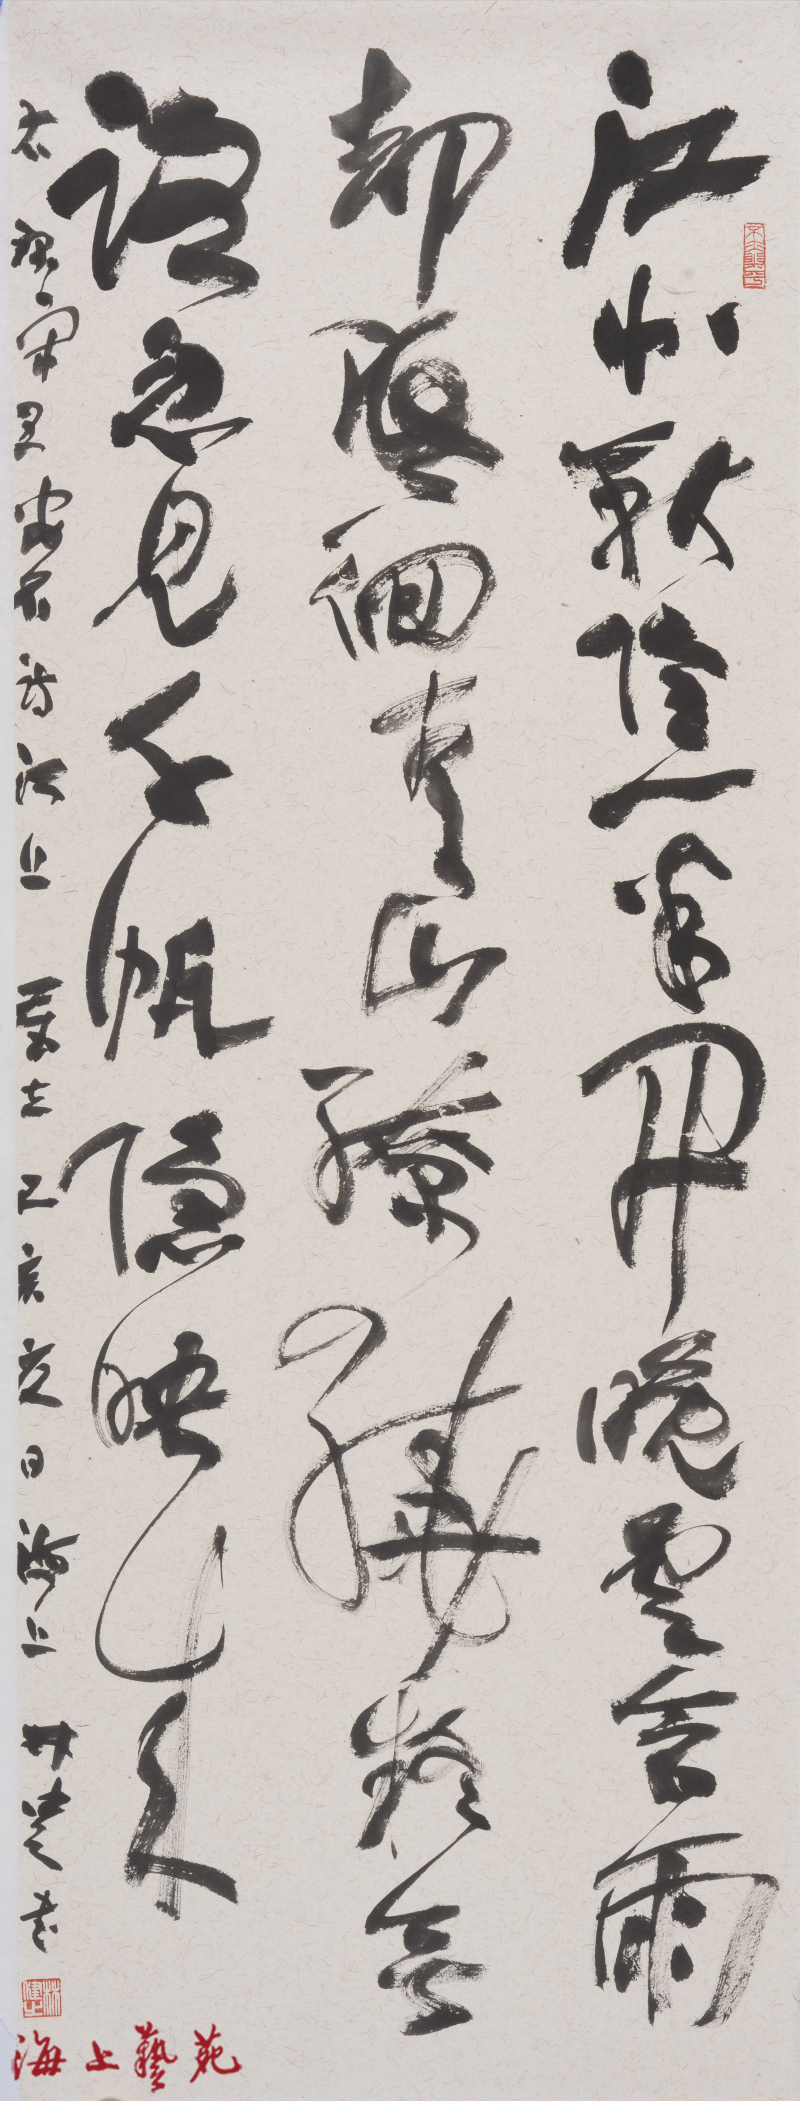 江北秋陰一半開晚雲含雨
却低徊青山繚繞疑無
路忽見千帆隱映來
右録宋王安石詩江上 歲在己亥夏日海上 林書
海上藝苑